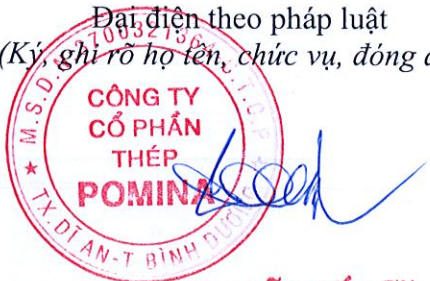 Đại diện theo pháp luật
(Ký, ghi rõ họ tên, chức vụ, đóng d
M.S.D.N: 3700321364-C.T.C.P
CÔNG TY
CỔ PHẦN
THÉP
POMINA
★ TX.DĨ AN-T BÌNH DƯƠNG